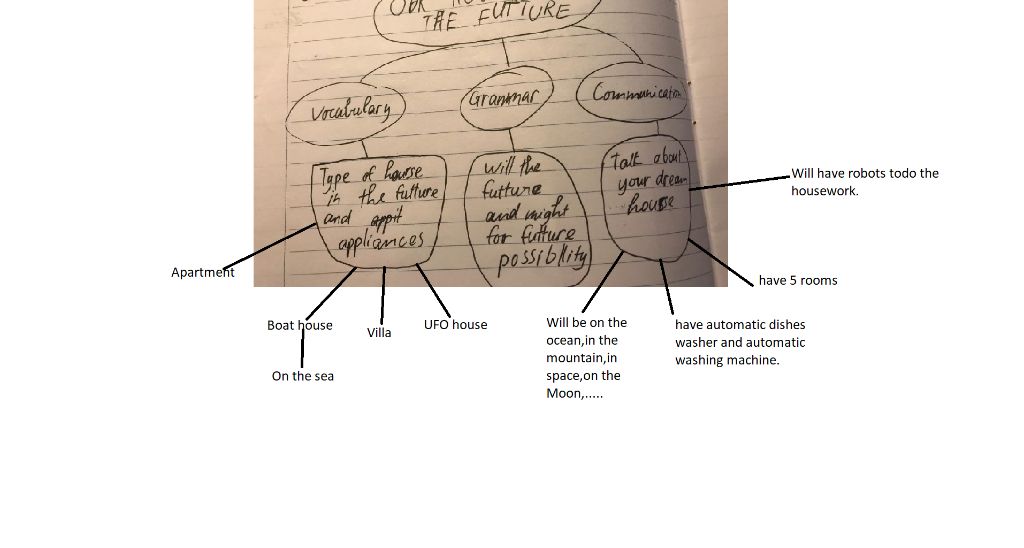 OUR
THE FUTTURE
Vocabulary
Grammar
Communication
Type of house
in the futture
and appit
appliances
Will the
futture
and might
for futture
possiblity
Talk about
your dream
house
Will have robots todo the
housework.
Apartment
have 5 rooms
Boat house
Villa
UFO house
On the sea
Will be on the
ocean,in the
mountain,in
space,on the
Moon,.....
have automatic dishes
washer and automatic
washing machine.